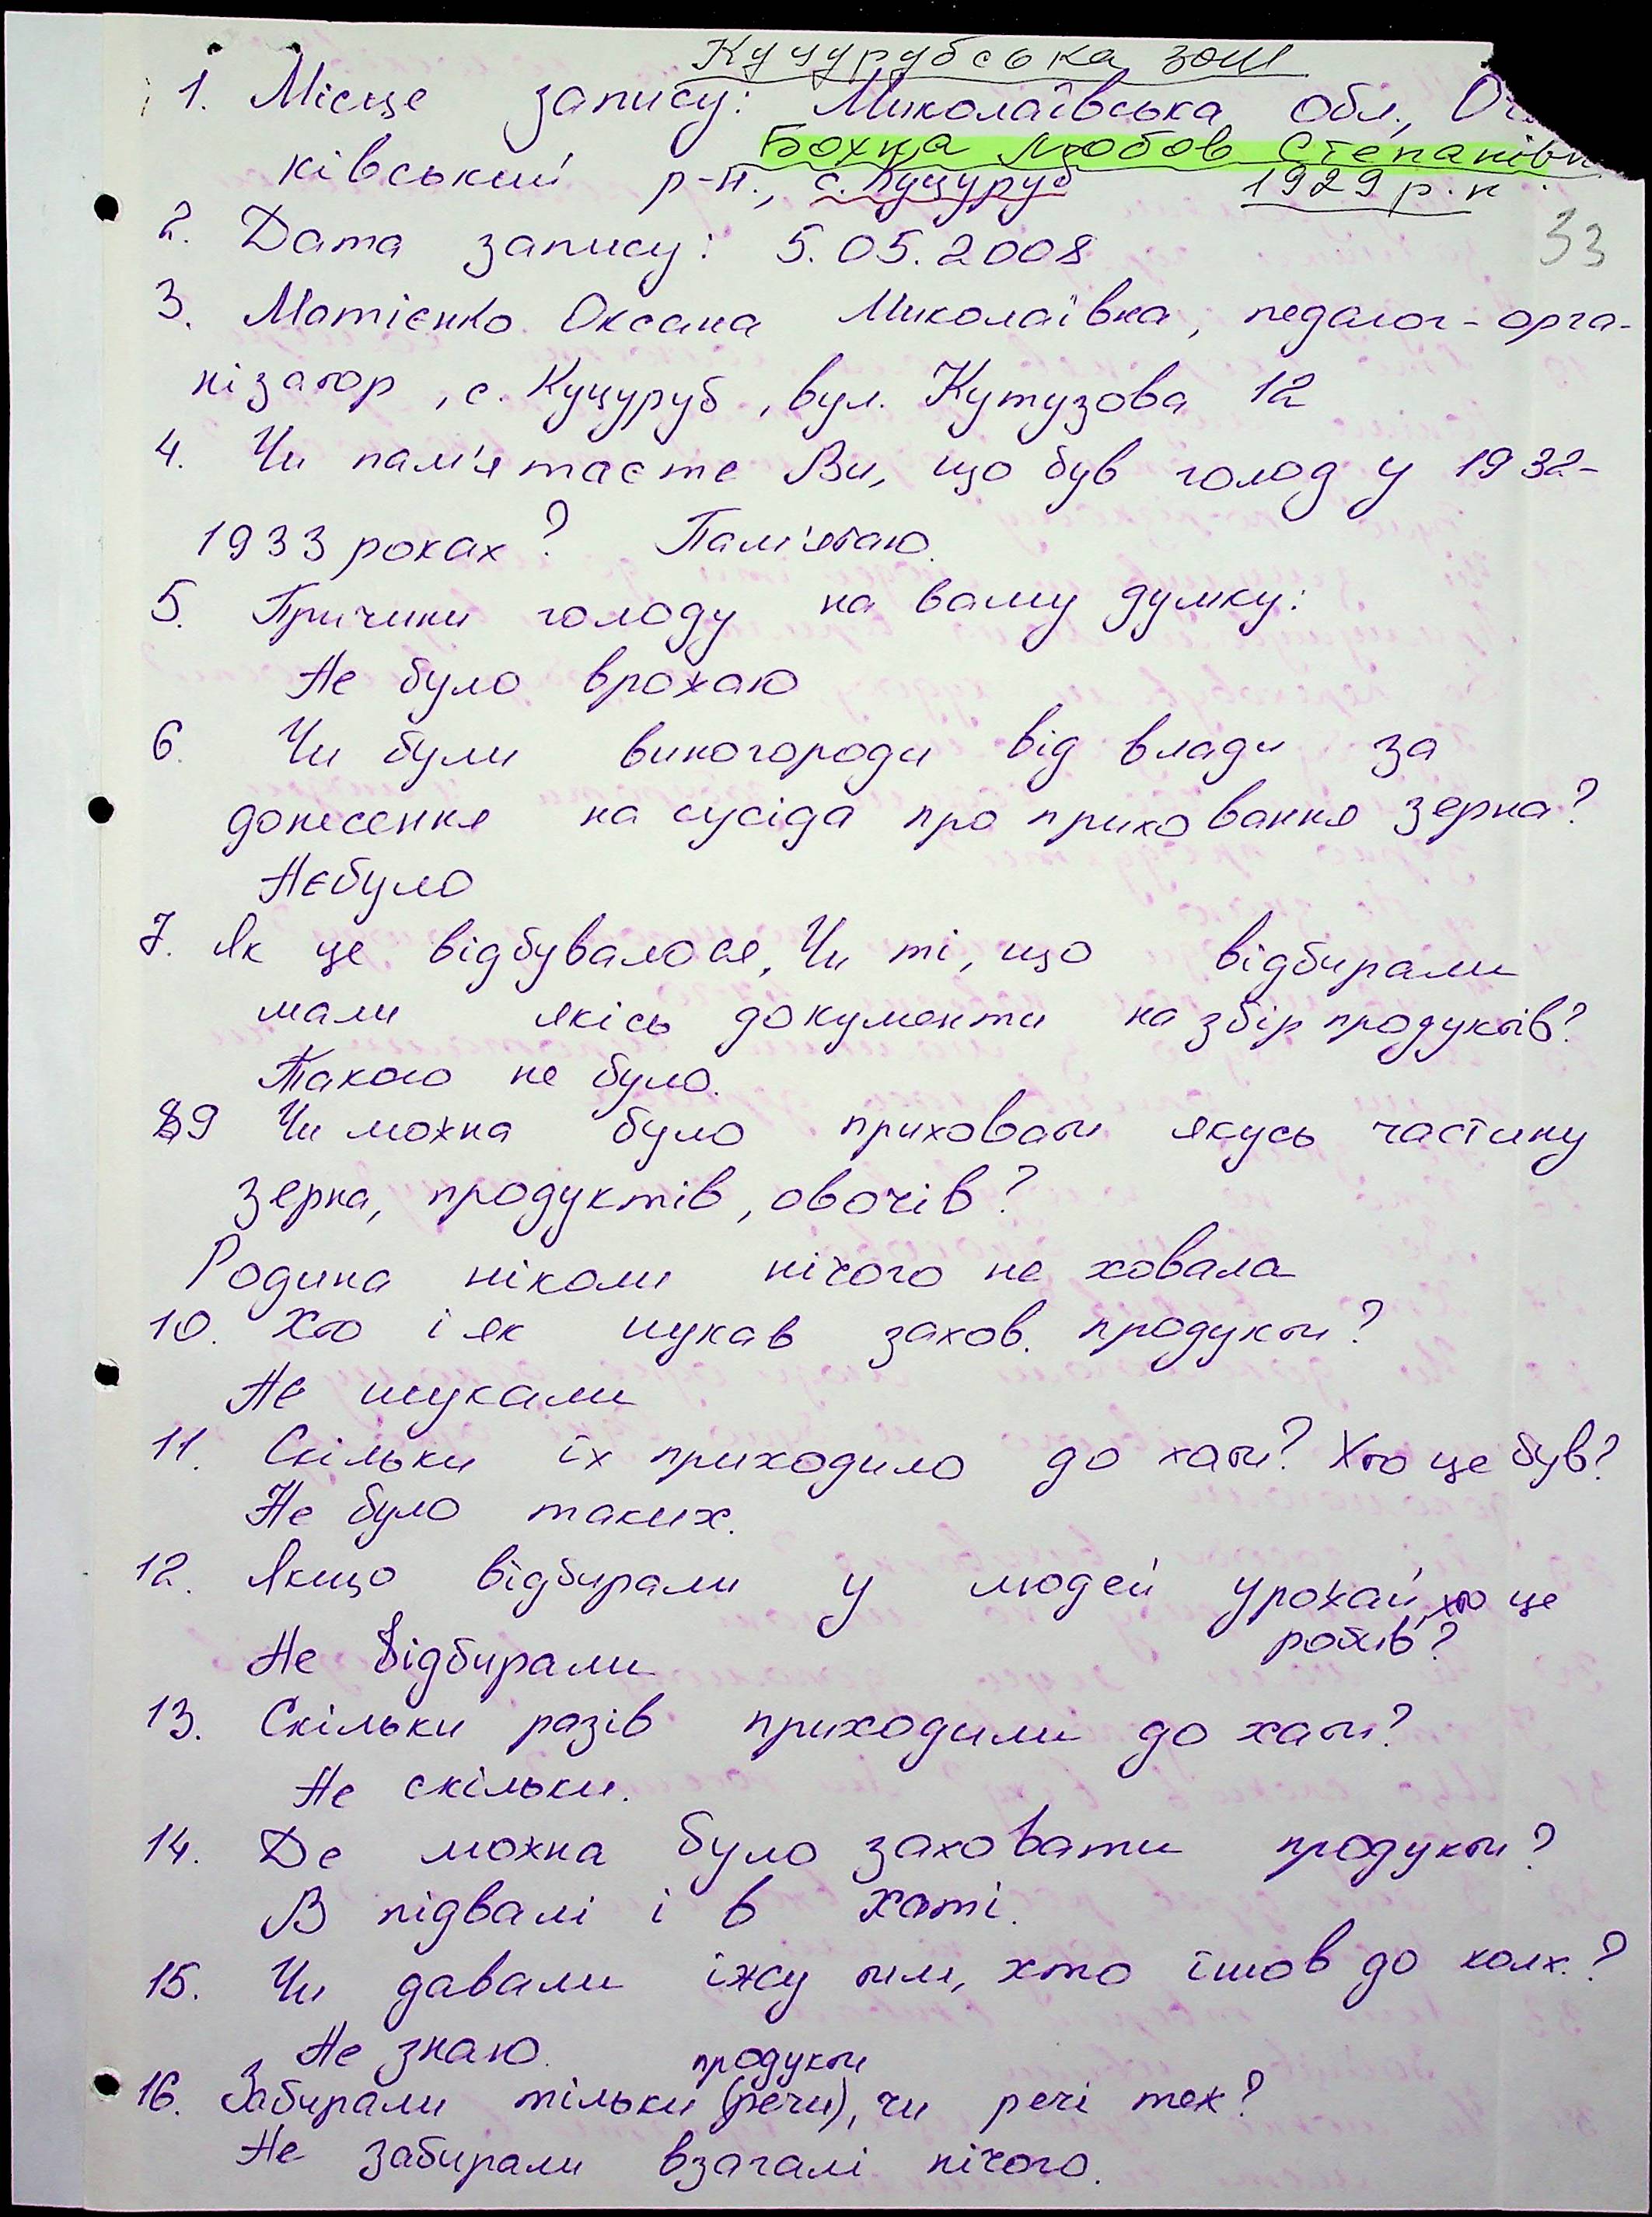 Куцурубська зош
1. Місце запису: Миколаївська обл.,
Бохна Любов Степанівн
ківський р-н., с. Куцуруб 1929 р.н.
2. Дата запису: 5.05.2008
33
3. Матієнко Оксана Миколаївна, педагог-орга-
нізатор, с. Куцуруб, вул. Кутузова 12
4. Чи пам'ятаєте Ви, що був голод у 1932-
1933 роках? Пам'ятаю.
5. Причини голоду на вашу думку:
Не було врожаю
6. Чи були виногороди від влади за
донесення на сусіда про приховання зерна?
Небуло
7. Як це відбувалося, Чи ті, що відбирали
мали якісь документи на збір продуктів?
Такого не було.
9 Чи можна було приховати якусь частину
зерна, продуктів, овочів?
Родина ніколи нічого не ховала
10. Хто і як шукав захов. продукти?
Не шукали
11. Скільки їх приходило до хати? Хто це був?
Не було таких.
12. Якщо відбирали у людей урожай, хто це
робив?
Не відбирали
13. Скільки разів приходили до хати?
Не скільки.
14. Де можна було заховати продукти?
В підвалі і в хаті.
15. Чи давали їжу тим, хто ішов до колх.?
Не знаю.
продукти
16. Забирали тільки (речи), чи речі теж?
Не забирали взагалі нічого.